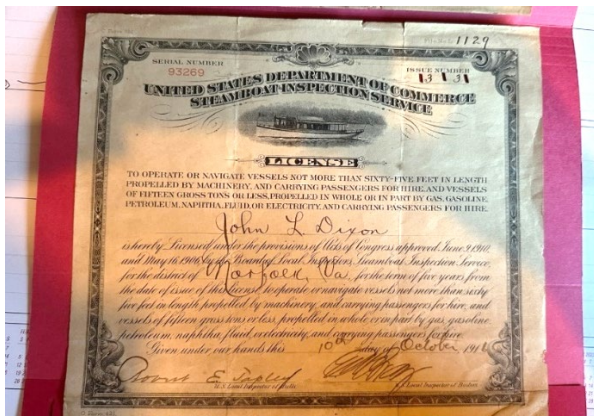 1129
SERIAL NUMBER
93269
ISSUE NUMBER
UNITED STATES DEPARTMENT OF COMMERCE
STEAMBOAT-INSPECTION SERVICE
LICENSE
TO OPERATE OR NAVIGATE VESSELS NOT MORE THAN SIXTY-FIVE FEET IN LENGTH
PROPELLED BY MACHINERY, AND CARRYING PASSENGERS FOR HIRE, AND VESSELS
OF FIFTEEN GROSS TONS OR LESS, PROPELLED IN WHOLE OR IN PART BY GAS, GASOLINE,
PETROLEUM, NAPHTHA, FLUID, OR ELECTRICITY, AND CARRYING PASSENGERS FOR HIRE.
John L Dixon
is hereby Licensed under the provisions of Acts of Congress approved June 9, 1910,
and May 16, 1906, by the Board of Local Inspectors, Steamboat Inspection Service,
for the district of Norfolk, Va. for the term of five years from
the date of issue of this license to operate or navigate vessels not more than sixty
five feet in length, propelled by machinery, and carrying passengers for hire, and
vessels of fifteen gross tons or less, propelled in whole or in part by gas, gasoline,
petroleum, naphtha, fluid, or electricity, and carrying passengers for hire.
Given under our hands this 10th day of October 191
E.
U.S. Local Inspector of Hulls.
Local Inspector of Boilers.